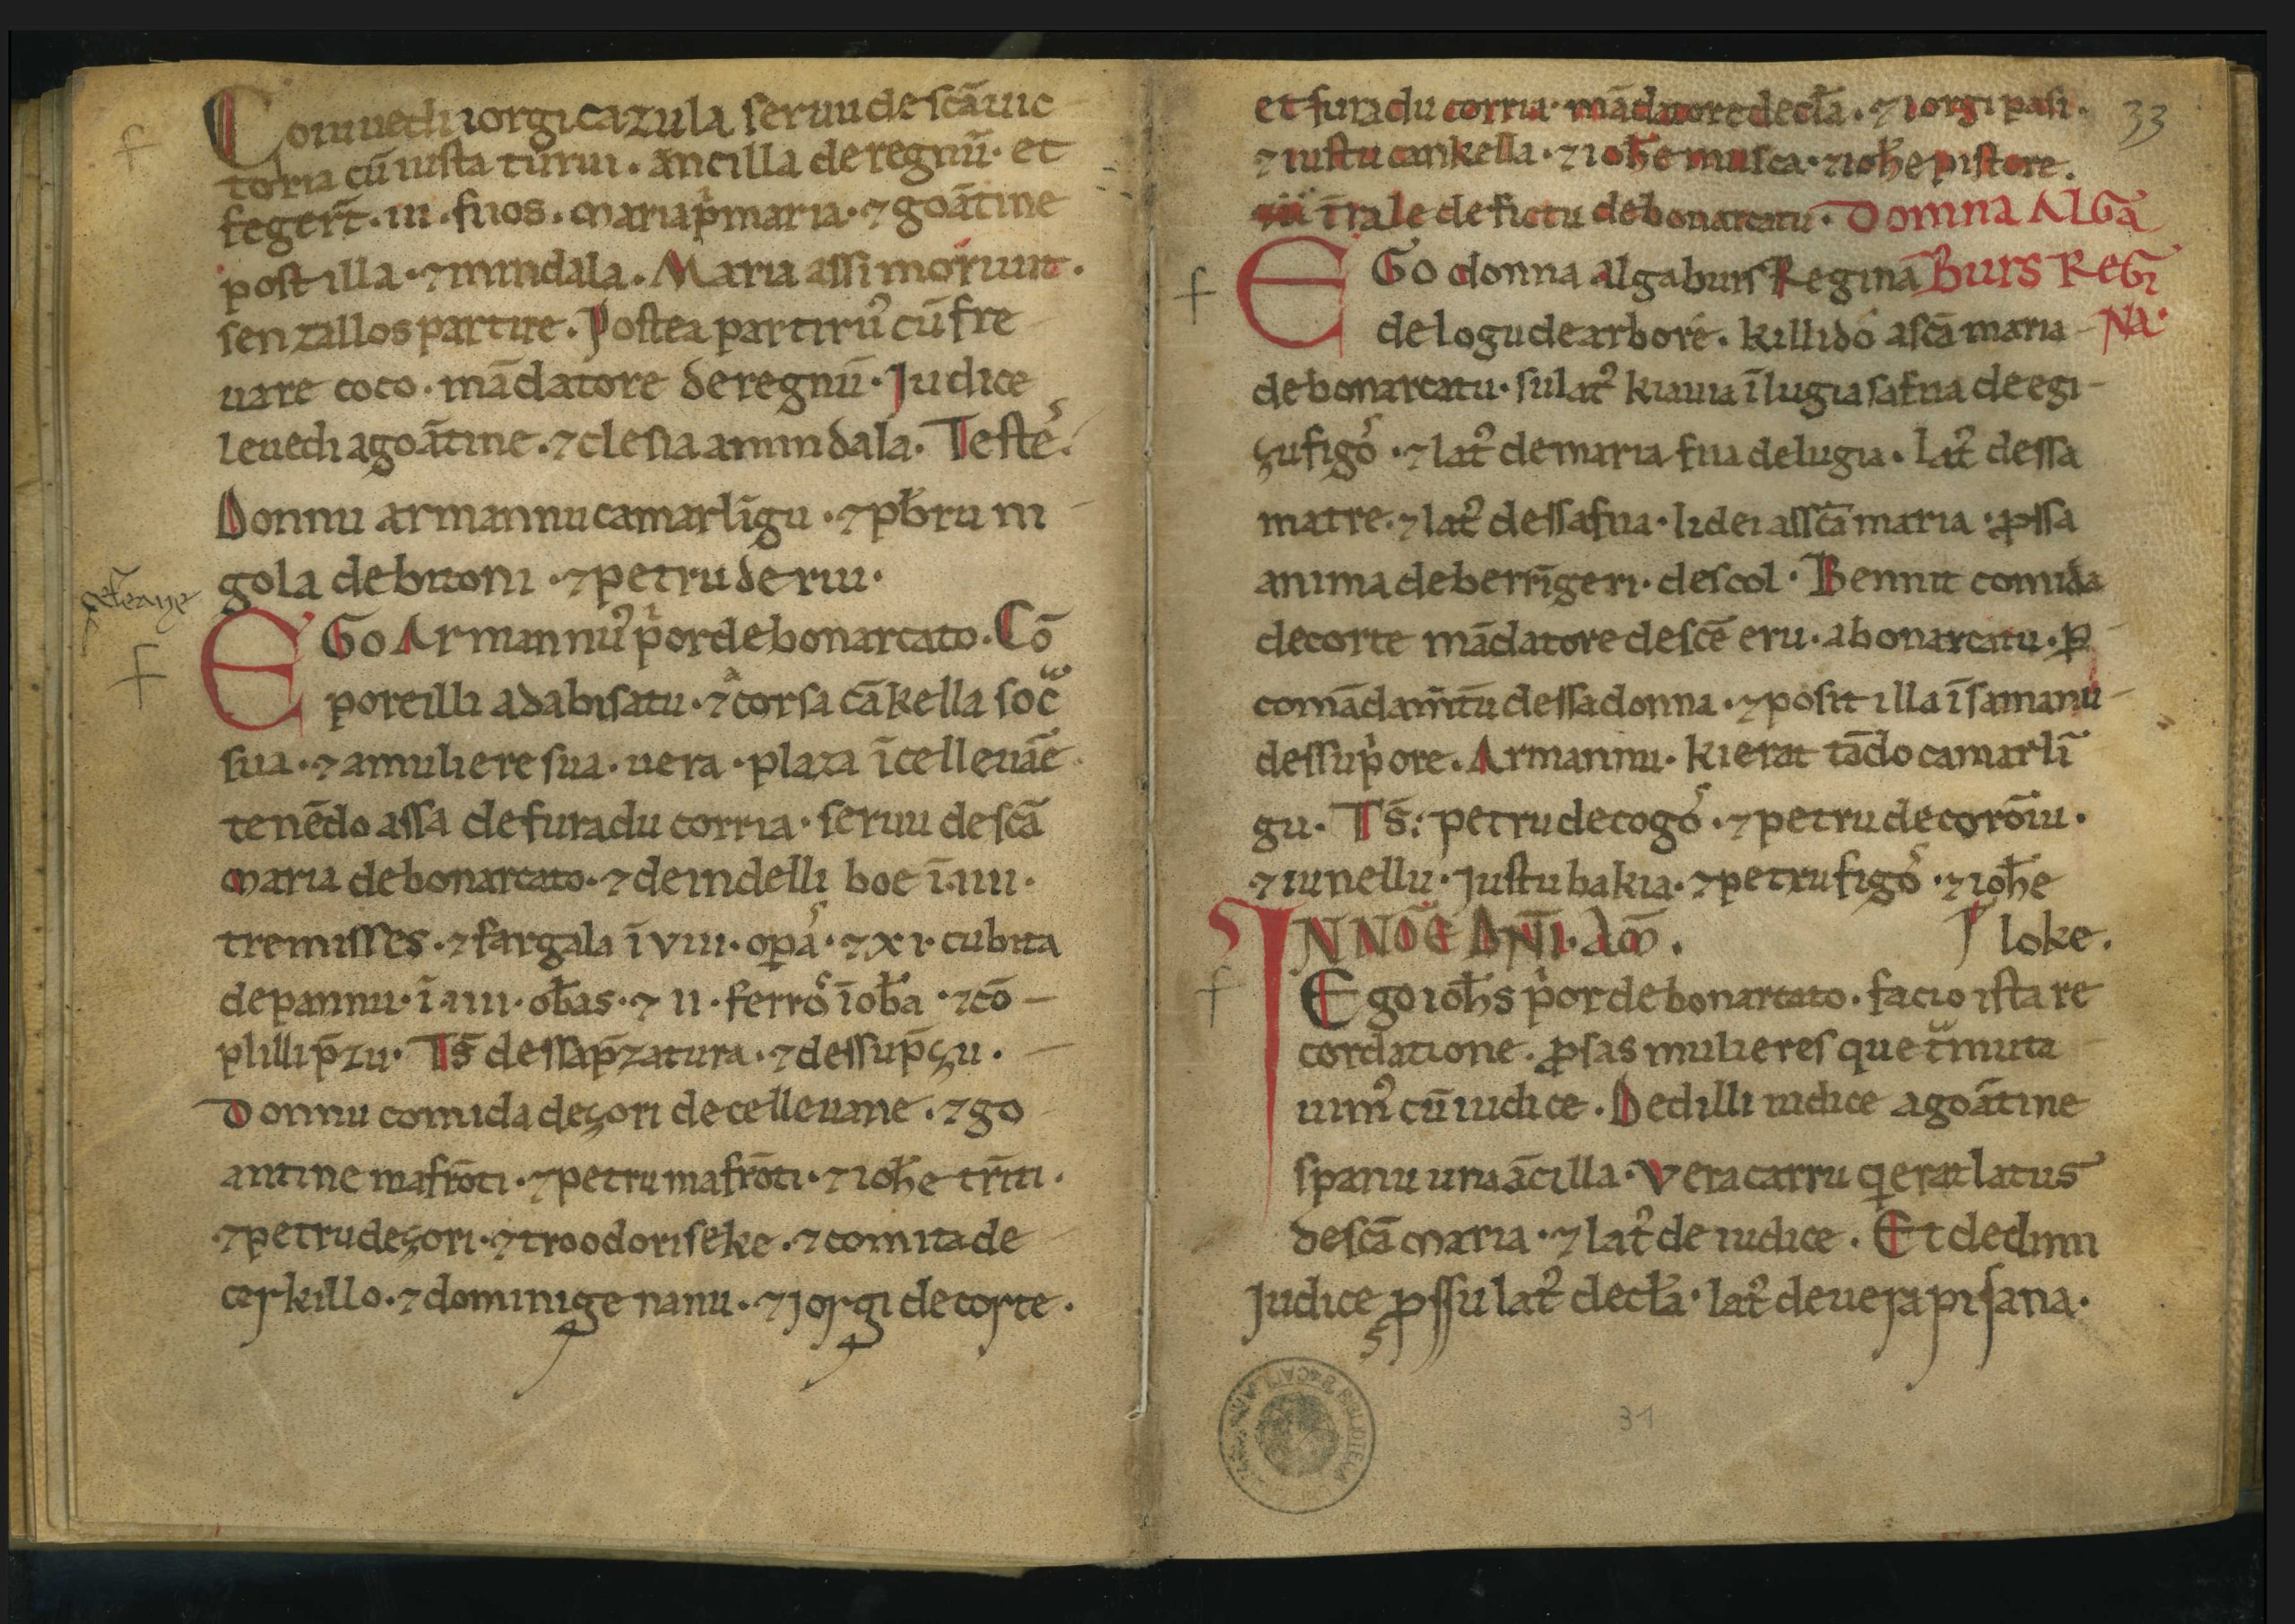 Coiuuedi iorgi cazula seruu de scā uic
toria cū iusta turui. ancilla de regnū. et
fegerт̄. iii. fiios. maria p̍maria. ⁊ goātine
post illa. ⁊ mindala. Maria assi moriuit.
senzallos partire. Postea partirūꝰ cū fre
uare coco. mādatore de regnū. Judice
leuedi a goātine. ⁊ clesia a mindala. Testēs.
Donnu armannu camarlīgu. ⁊ pb̄ru ni
gola de bitoni. ⁊ petru de riu.
EGo Armannuꝰ p̍or de bonarcato. Cō
porcilli ad abisatu. ⁊ a corsa cākella soc̄
sua. ⁊ a muliere sua. uera. plaza ī celleuāe
tenēdo assa de furadu corria. seruu de scā
maria de bonarcato. ⁊ deindelli boe ī. iiii.
tremisses. ⁊ fargala ī viii. opas. ⁊ xi. cubita
de pannu. ī. iiii. ob̄as. ⁊ ii. ferros ī ob̄a. ⁊ cō
plilli p̄zu. Ts̄ dessa p̄zatura. ⁊ dessu p̄çu.
Donnu comida de çori de celleuane. ⁊ go
antine mafrōti. ⁊ petru mafrōti. ⁊ ioh̄e tr̄iti.
⁊ petru de çori. ⁊ troodori seke. ⁊ comita de
cerkillo. ⁊ dominige nanu. ⁊ jorgi de corte.
et furadu corria. mādatore de cl̄a. ⁊ iorgi pasi.
33
⁊ iustu cankella. ⁊ ioh̄e musca. ⁊ ioh̄e pistore.
īt̄rale de fictu de bonarcatu. Domna ALGā
EGo donna algaburs Regina Burs REGI
de logu de arborē. killi dó a scā maria NA.
de bonarcatu. su latꝰ ki auia ī lugia sa fiia de egi
çu figos. ⁊ latꝰ de maria fiia de lugia. latꝰ dessa
matre. ⁊ latꝰ dessa fiia. li dei assc̄a maria. ꝓssa
anima de berrīgeri. de scol. Bennit comida
de corte mādatore de scē eru. a bonarcatu. ꝑ
comādam̄tū dessa donna. ⁊ posit illa ī sa manu
dessu p̍ore. Armannu. ki erat tādo camarlī
gu. Ts̄: petru de cogos. ⁊ petru de corōiu.
⁊ iunellu. justu bakia. ⁊ petru figos. ⁊ ioh̄e
IN NOĒ DN̄I. Am̄. P loke.
Ego ioh̄s p̍or de bonarcato. facio ista re
cordatione. ꝓsas mulieres que t̄muta
uimꝰ cū iudice. Dedilli iudice a goātine
spanu una ācilla. Vera carru q̍ erat latus
de scā maria. ⁊ latꝰ de iudice. Et dedimi
judice ꝓssu latꝰ de cl̄a. latꝰ de uera pisana.
31